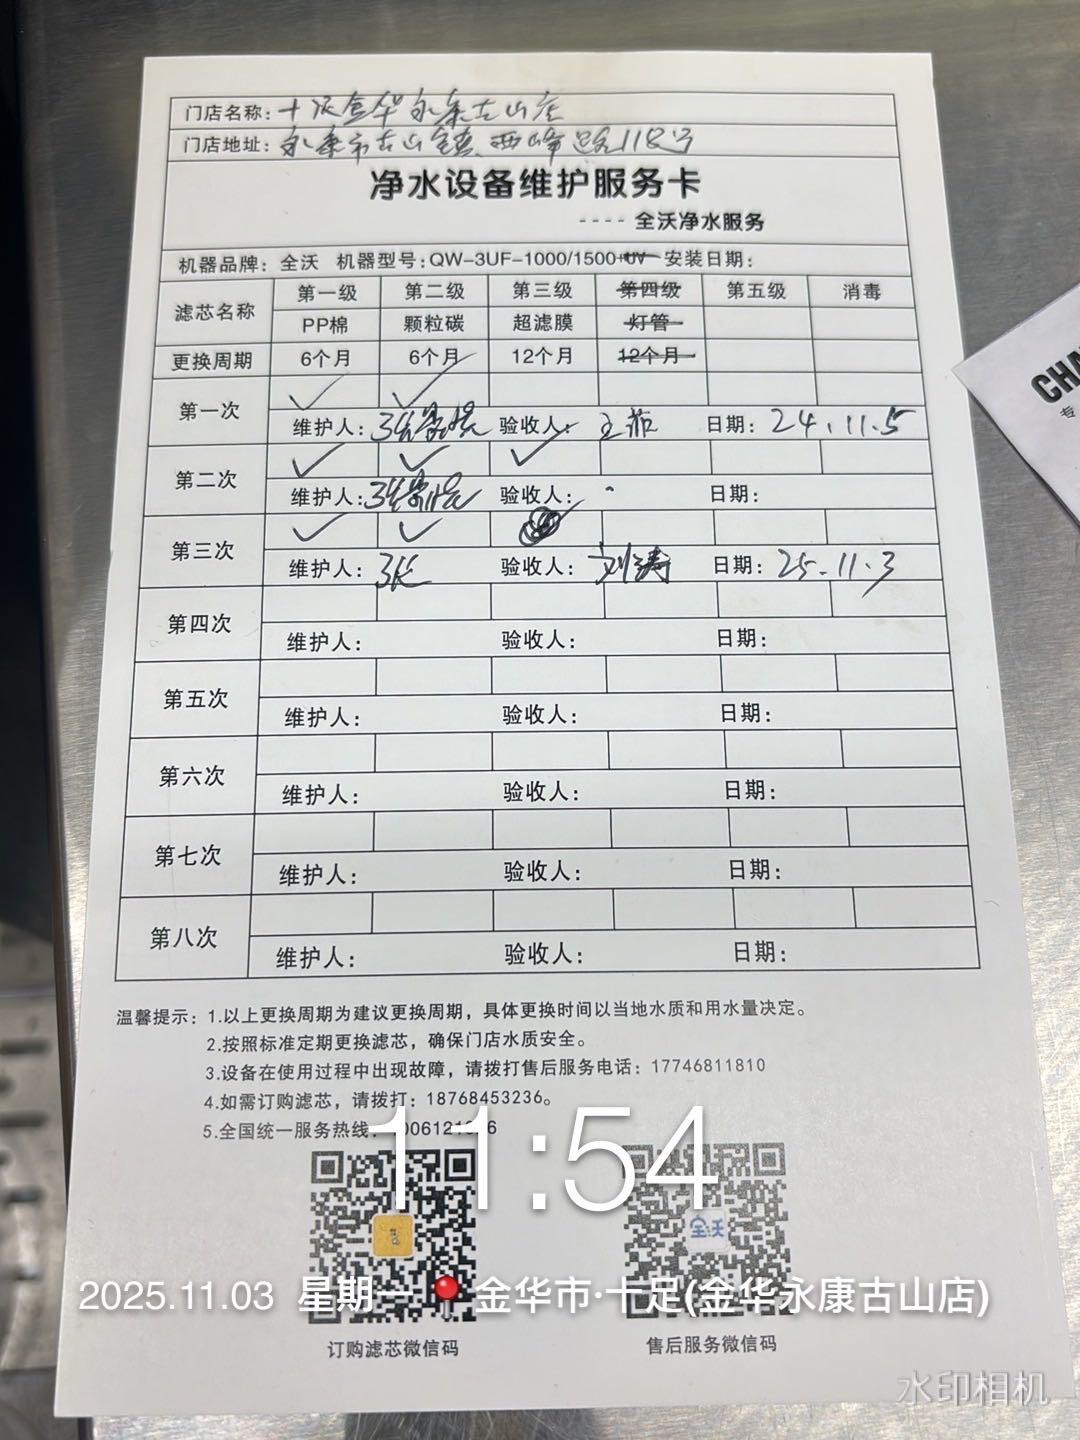 门店名称：十足金华永康古山店
门店地址：永康市古山镇西峰路118号
净水设备维护服务卡
----全沃净水服务
机器品牌：全沃 机器型号：QW-3UF-1000/1500+UV 安装日期：
滤芯名称 第一级 第二级 第三级 第四级 第五级 消毒
PP棉 颗粒碳 超滤膜 灯管
更换周期 6个月 6个月 12个月 12个月
第一次
维护人： 验收人：王茹 日期：24.11.5
第二次
维护人： 验收人： 日期：
第三次
维护人：张 验收人：刘涛 日期：25.11.3
第四次
维护人： 验收人： 日期：
第五次
维护人： 验收人： 日期：
第六次
维护人： 验收人： 日期：
第七次
维护人： 验收人： 日期：
第八次
维护人： 验收人： 日期：
温馨提示：1.以上更换周期为建议更换周期，具体更换时间以当地水质和用水量决定。
2.按照标准定期更换滤芯，确保门店水质安全。
3.设备在使用过程中出现故障，请拨打售后服务电话：17746811810
4.如需订购滤芯，请拨打：18768453236。
5.全国统一服务热线：
11:54
全沃
2025.11.03 星期一 金华市·十足(金华永康古山店)
订购滤芯微信码 售后服务微信码
水印相机
CHA
专